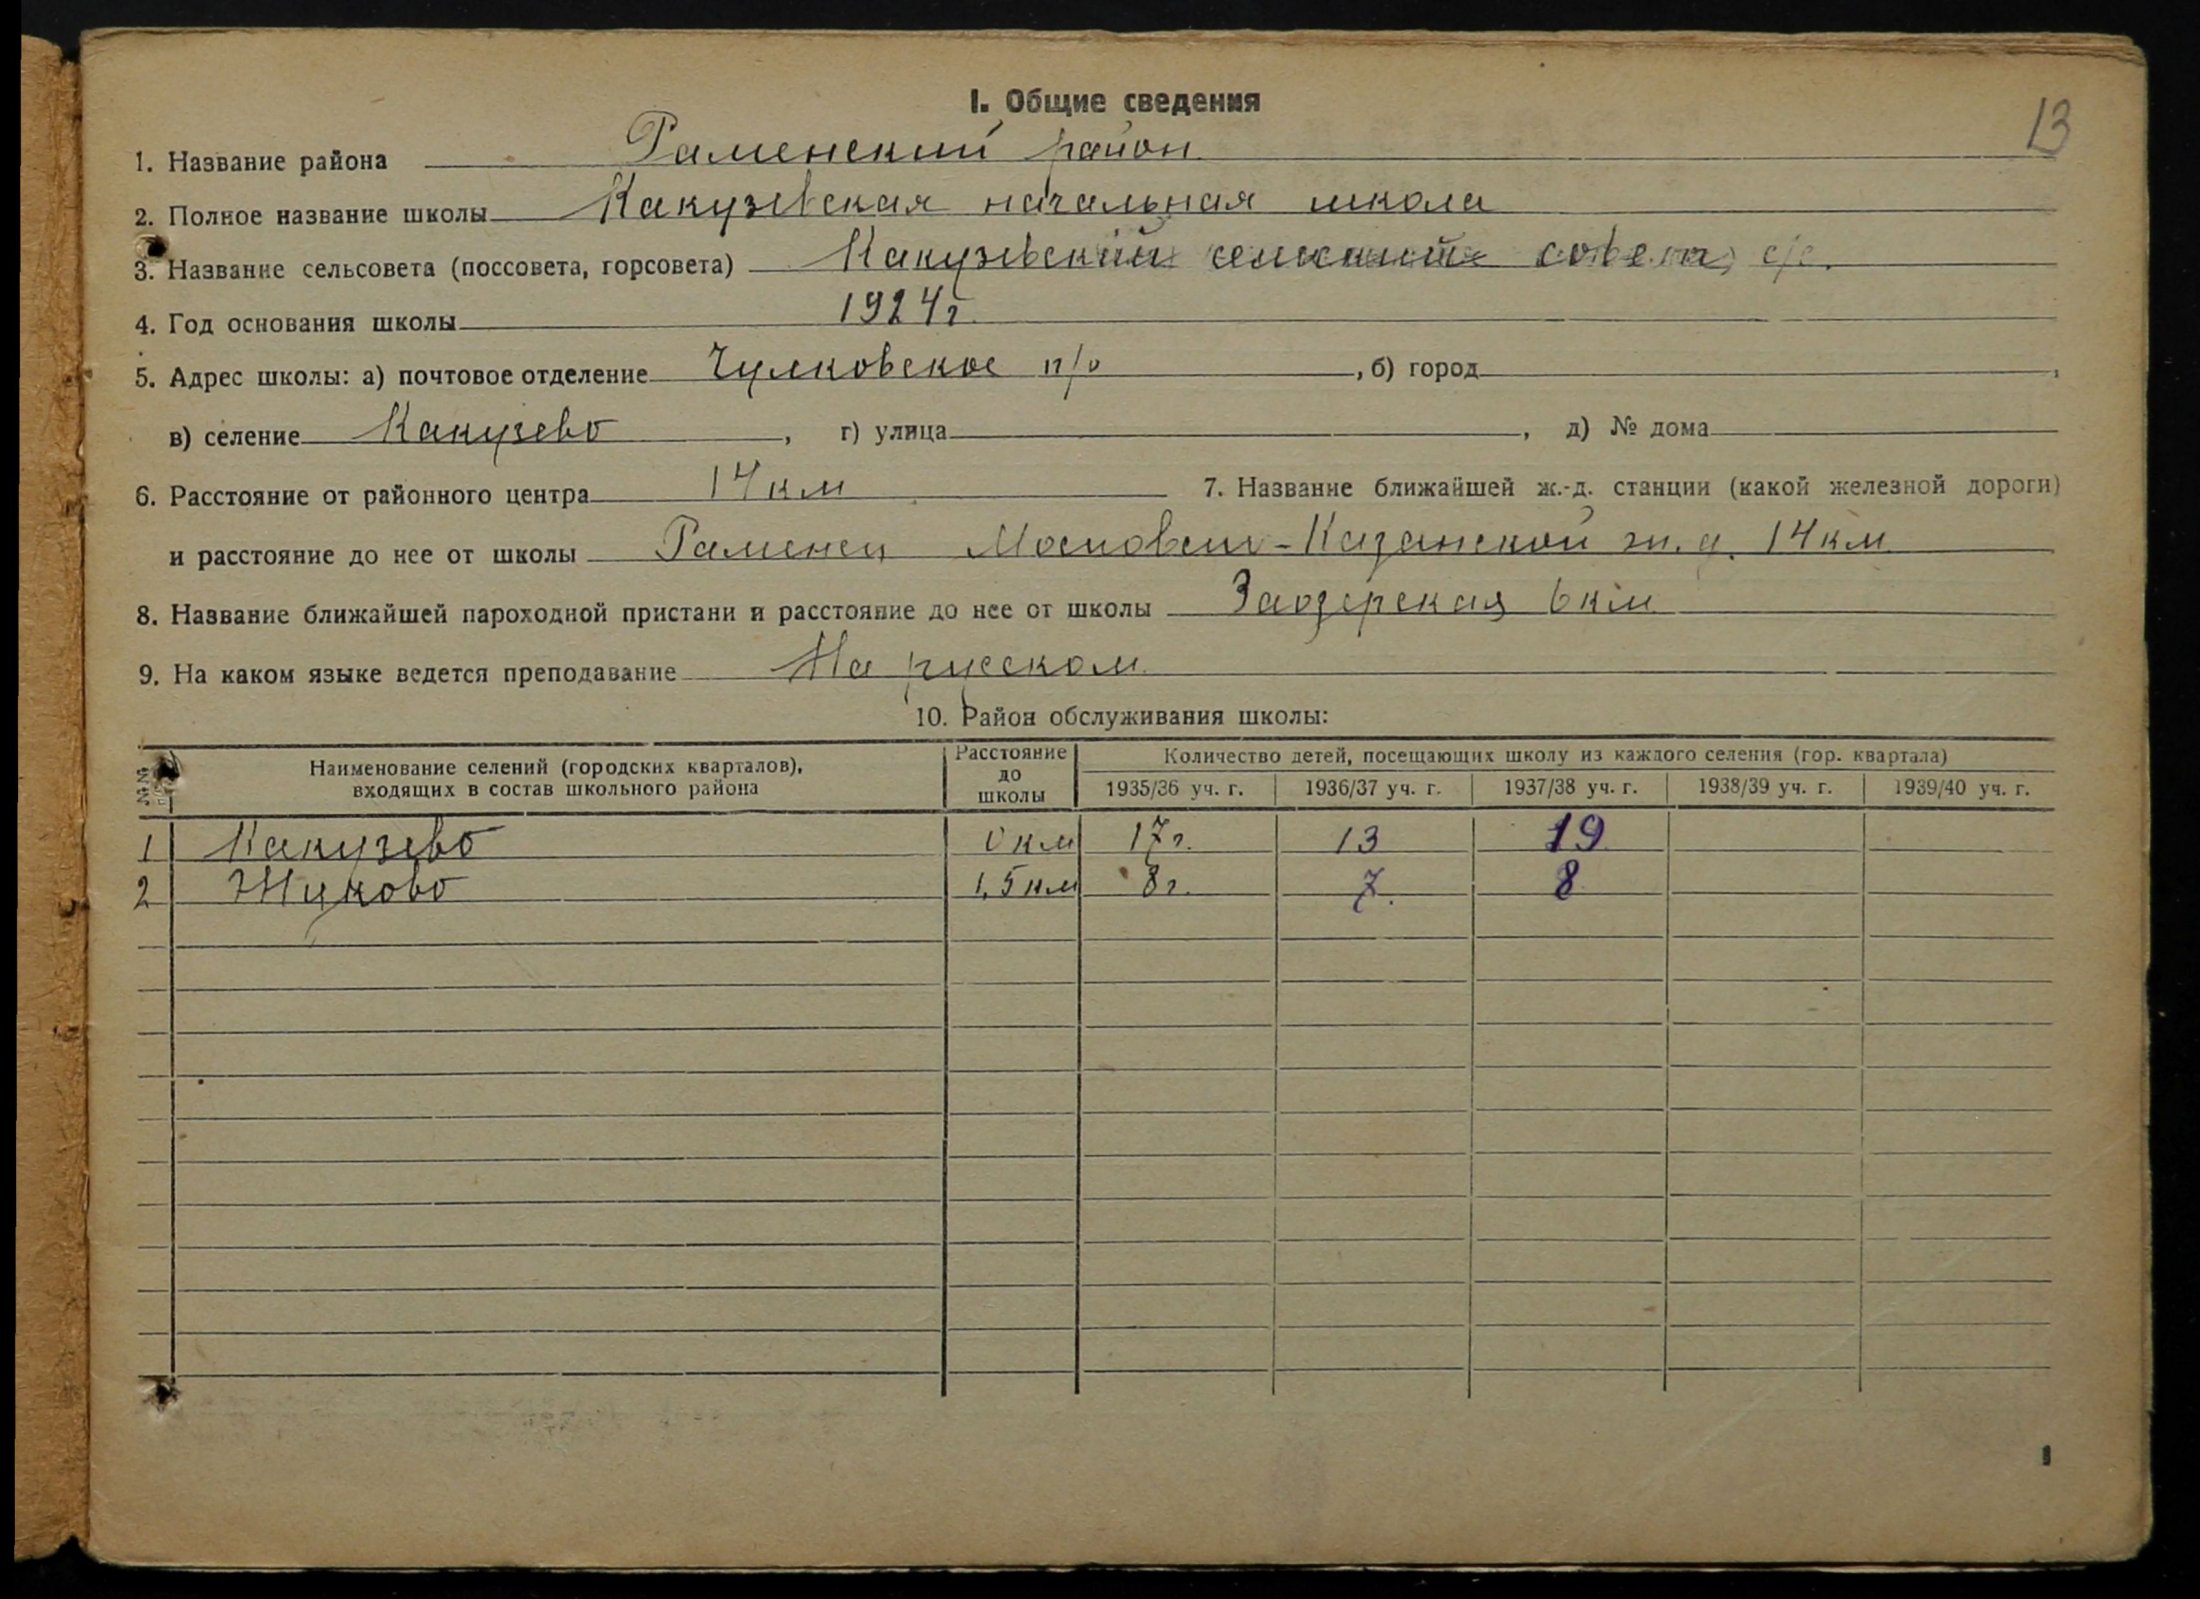 I. Общие сведения
13
1. Название района Раменский район
2. Полное название школы Какузевская начальная школа
3. Название сельсовета (поссовета, горсовета) Какузевский совета с/с.
4. Год основания школы 1924 г.
5. Адрес школы: а) почтовое отделение Чулковское п/о, б) город ,
в) селение Какузево, г) улица , д) № дома
6. Расстояние от районного центра 14 км 7. Название ближайшей ж.-д. станции (какой железной дороги)
и расстояние до нее от школы Московско-Казанской ж. д. 14 км
8. Название ближайшей пароходной пристани и расстояние до нее от школы Заозерская 6 км
9. На каком языке ведется преподавание На русском
10. Район обслуживания школы:
№№ Наименование селений (городских кварталов), входящих в состав школьного района Расстояние до школы Количество детей, посещающих школу из каждого селения (гор. квартала)
1935/36 уч. г. 1936/37 уч. г. 1937/38 уч. г. 1938/39 уч. г. 1939/40 уч. г.
1 Какузево 0 км 17 г. 13 19
2 Жуково 1,5 км 8 г. 7. 8